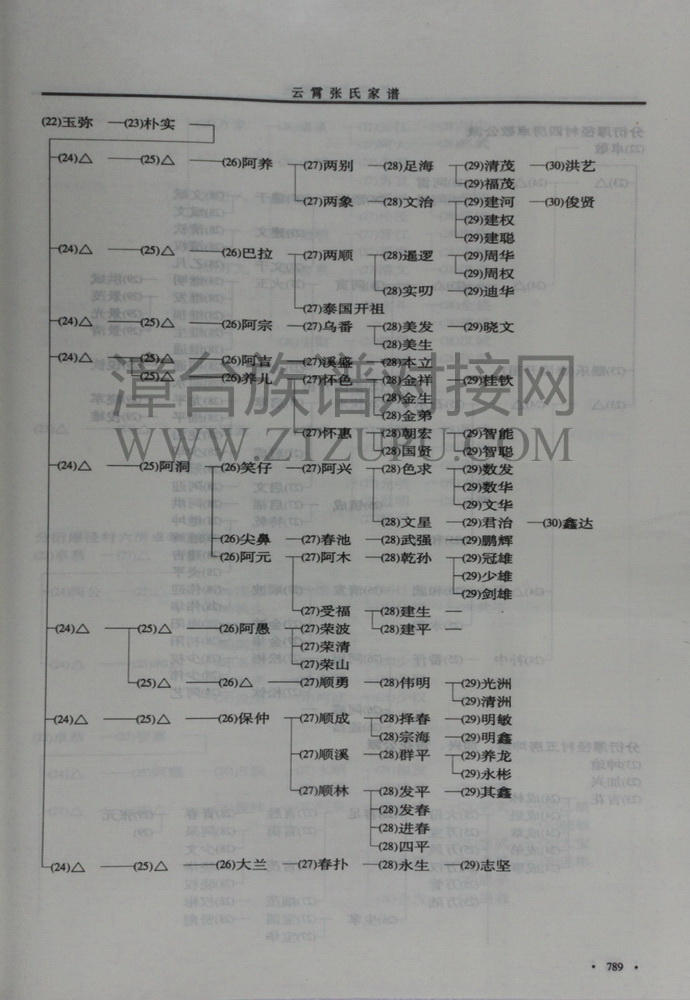 云霄张氏家谱
(22)玉弥 (23)朴实
(24)△ (25)△ (26)阿养 (27)两别 (28)足海 (29)清茂 (30)洪艺
(29)福茂
(27)两象 (28)文治 (29)建河 (30)俊贤
(29)建权
(29)建聪
(24)△ (25)△ (26)巴拉 (27)两顺 (28)暹逻 (29)周华
(29)周权
(28)实叨 (29)迪华
(27)泰国开祖
(24)△ (25)△ (26)阿宗 (27)乌番 (28)美发 (29)晓文
(28)美生
(24)△ (25)△ (26)阿吉 (27)溪盛 (28)本立
(25)△ (26)养儿 (27)怀色 (28)金祥 (29)桂钦
(28)金生
(28)金弟
(27)怀惠 (28)朝宏 (29)智能
(28)国贤 (29)智聪
(24)△ (25)阿洞 (26)笑仔 (27)阿兴 (28)色求 (29)数发
(29)数华
(29)文华
(28)文星 (29)君治 (30)鑫达
(26)尖鼻 (27)春池 (28)武强 (29)鹏辉
(26)阿元 (27)阿木 (28)乾孙 (29)冠雄
(29)少雄
(29)剑雄
(27)受福 (28)建生 —
(24)△ (25)△ (26)阿愚 (27)荣波 (28)建平 —
(27)荣清
(27)荣山
(25)△ (26)△ (27)顺勇 (28)伟明 (29)光洲
(29)清洲
(24)△ (25)△ (26)保仲 (27)顺成 (28)择春 (29)明敏
(28)宗海 (29)明鑫
(27)顺溪 (28)群平 (29)养龙
(29)永彬
(27)顺林 (28)发平 (29)其鑫
(28)发春
(28)进春
(28)四平
(24)△ (25)△ (26)大兰 (27)春扑 (28)永生 (29)志坚
漳台族谱对接网
WWW.ZTZUPU.COM
· 789 ·